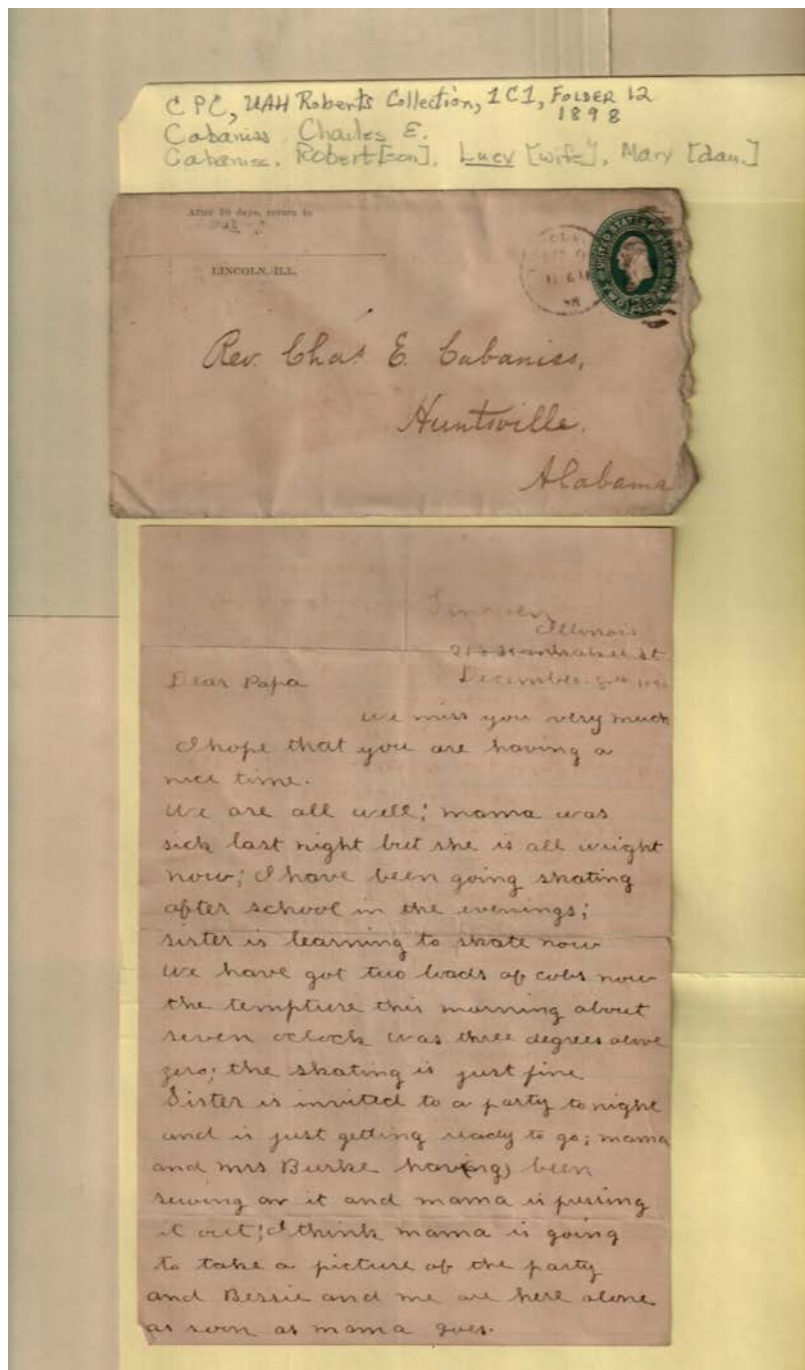 CPC, UAH Roberts Collection, 1C1, FOLDER 12
1898
Cabaniss, Charles E.
Cabaniss, Robert [son], Lucy [wife], Mary [dau.]
After 10 days, return to
LINCOLN, ILL.
UNITED STATES
Rev. Chas E. Cabaniss,
Huntsville,
Alabama
Lincoln
Illinois
St
December
Dear Papa
We miss you very much
I hope that you are having a
nice time.
We are all well; mama was
sick last night but she is all wright
now; I have been going skating
after school in the evenings;
sister is learning to skate now
We have got two loads of cobs now
the tempture this morning about
seven oclock was three degrees above
zero; the skating is just fine
Sister is invited to a party tonight
and is just getting ready to go; mama
and mrs Burke hav(ing) been
sewing on it and mama is pressing
it out; I think mama is going
to take a picture of the party
and Bessie and me are here alone
as soon as mama goes.